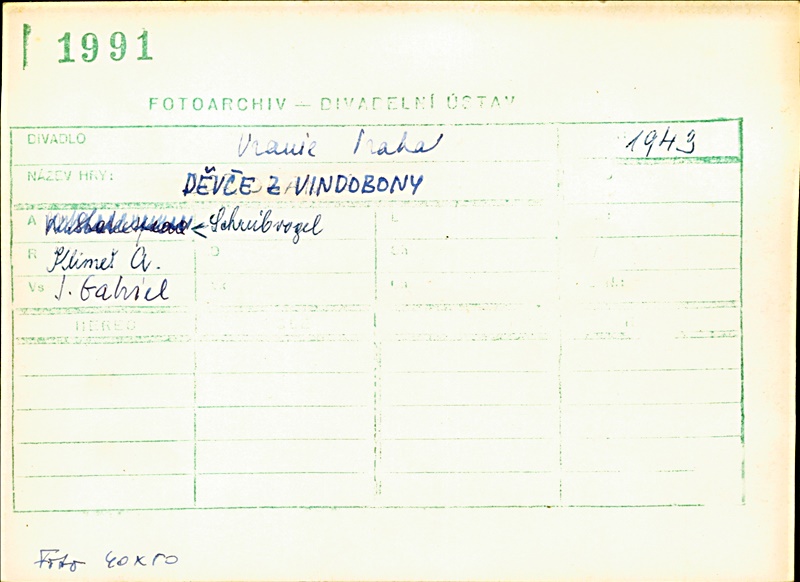 1991
FOTOARCHIV — DIVADELNÍ ÚSTAV
DIVADLO Uranie Praha 1943
NÁZEV HRY: DĚVČE Z VINDOBONY
A Schreibvogel
R Klimeš A.
Vs J. Gabriel
HEREC
Foto 40x50